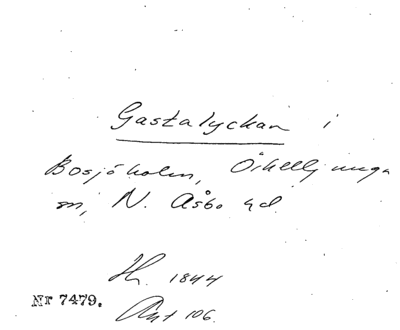 Gastalyckan i
Bosjöholm, Örkelljunga
sn, N. Åsbo hd.
Hs. 1844
Ant 106.
Nr 7479.